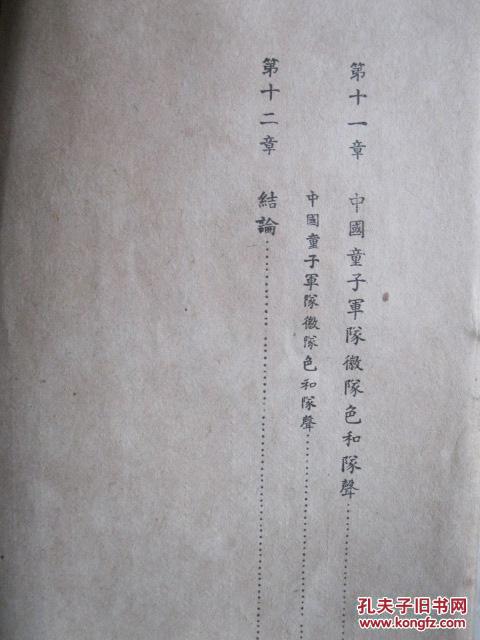 第十一章 中國童子軍隊徽隊色和隊聲
中國童子軍隊徽隊色和隊聲
第十二章 結論
孔夫子旧书网
www.kongfz.com